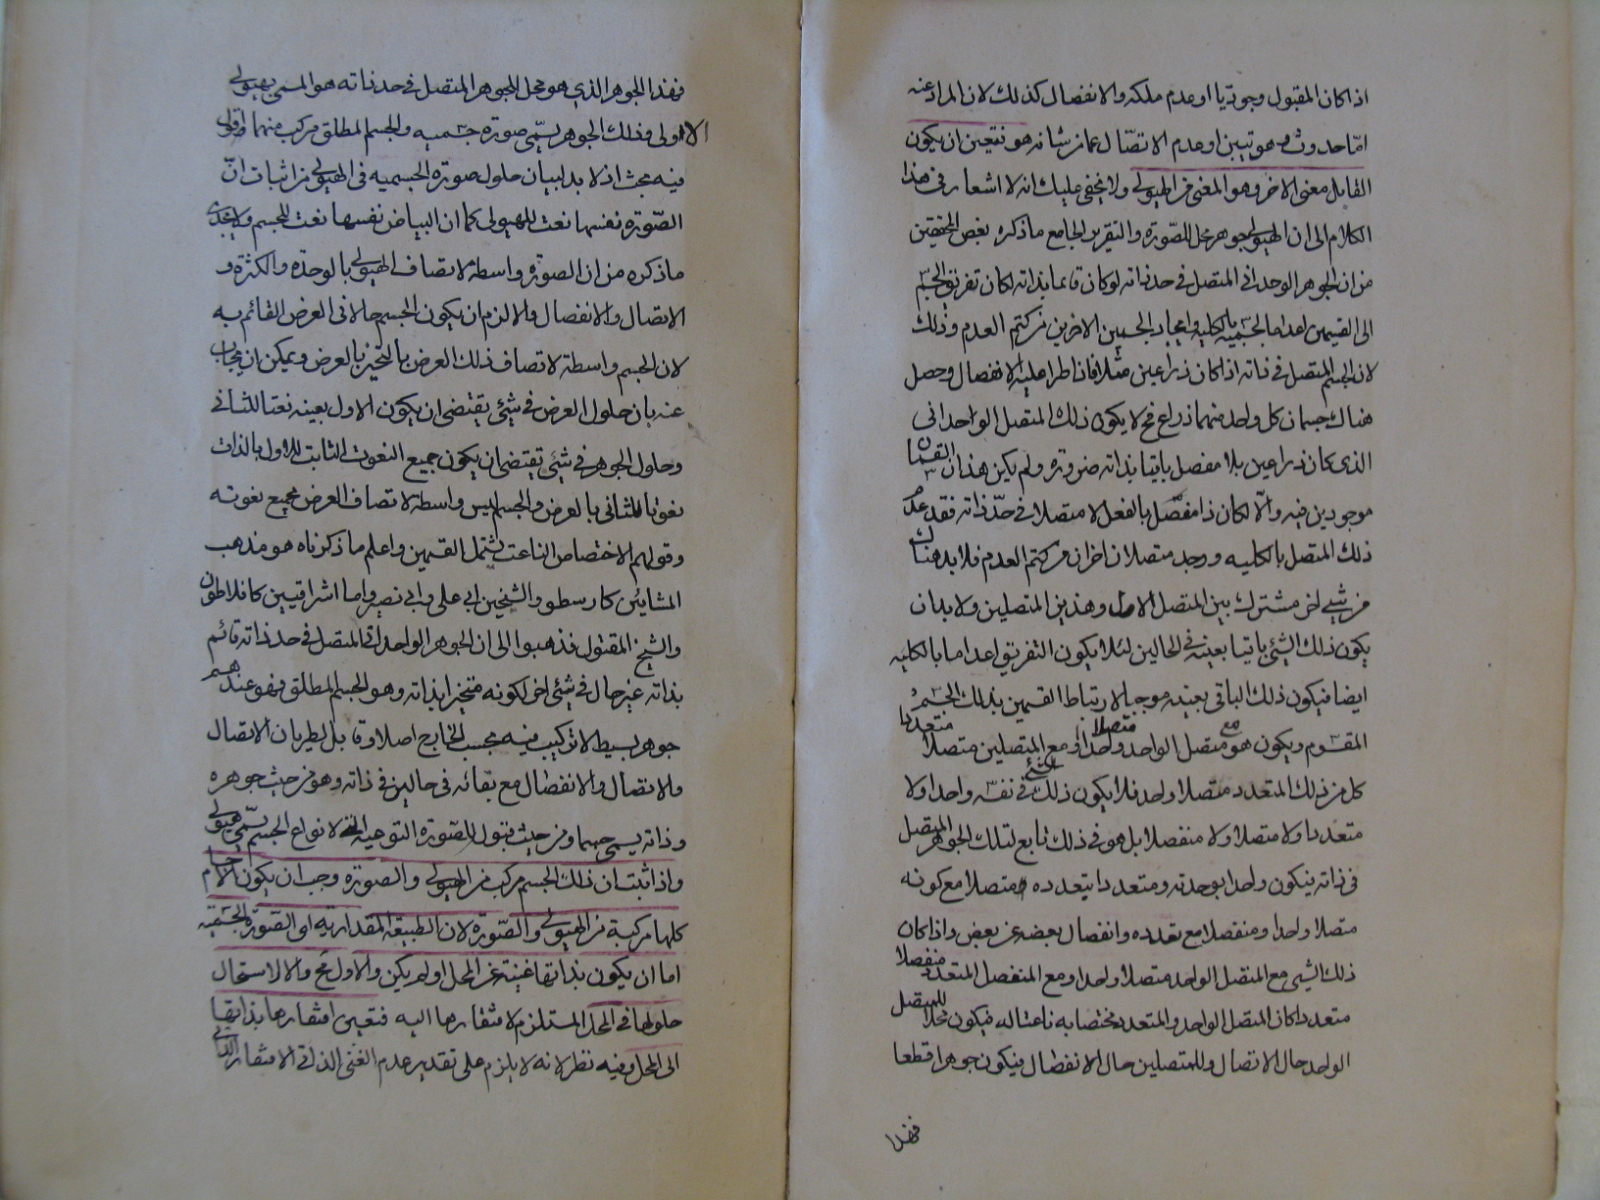 اذا كان المقبول وجوديا او عدم ملكه والانفصال كذلك لان المراد عنه
امّا حدوث هويتين او عدم الاتصّال عما من شانه هو فتعين ان يكون
القابل معنى الاخر وهو المعنى من الهيولى ولا يخفى عليك انه لا اشعار فى هذا
الكلام الى ان الهيولى جوهر محل للصّورة والتقرير الجامع ما ذكره بعض المحققين
من ان الجوهر الوحدانى المتصل فى حد ذاته لو كان قائما بذاته لكان تفريق الجسم
الى القسمين اعداما لجسميه بالكليه وايجاد الجسمين الاخرين من كتم العدم وذلك
لان الجسم المتصل فى ذاته اذا كان ذراعين مثلا فاذا طرا عليه الانفصال وحصل
هناك جسمان كل واحد منهما ذراع فح لا يكون ذلك المتصل الواحدانى
الذى كان ذراعين بلا مفصل باقيا بذاته ضرورة ولم يكن هذان القسمان
موجودين فيه والّا لكان ذا مفصّل بالفعل لا متصلا فى حدّ ذاته فقد عدم
ذلك المتصل بالكليه ووجد متصلان اخران من كتم العدم فلا بد هناك
من شىء اخر مشترك بين المتصل الاول وهذين المتصلين ولا بد ان
يكون ذلك الشئ باقيا بعينه فى الحالين لئلا يكون التفريق اعداما بالكليه
ايضا فيكون ذلك الباقى بعينه موجبا لارتباط القسمين بذلك الجسم
المقسوم ويكون هو مع متصل الواحد متصلا واحدا ومع المتصلين متصلا متعددا
كل من ذلك المتعدد متصلا واحد فلا يكون ذلك الشئ فى نفسه واحدا ولا
متعددا ولا متصلا ولا منفصلا بل هو فى ذلك تابع لتلك الجوهر المتصل
فى ذاته فيكون واحدا بوحدته ومتعددا بتعدده ومتصلا مع كونه
متصلا واحدا ومنفصلا مع تعدده وانفصال بعضه عن بعض واذا كان
ذلك الشىء مع المتصل الواحد متصلا واحدا ومع المنفصل المتعدد منفصلا
متعددا كان المتصل الواحد والمتعدد مختصا به ناعتا له فيكون محلا للمتصل
الواحد حال الاتصال وللمتصلين حال الانفصال فيكون جوهرا قطعا
فهذا
فهذا الجوهر الذى هو محل للجوهر المتصل فى حد ذاته هو المسمى بهيولى
الاولى وذلك الجوهر يسمّى صورة جسميه والجسم المطلق مركب منهما واقول
فيه بحث اذ لا بد لبيان حلول صورة الجسميه فى الهيولى من اثبات انّ
الصّورة نفسها نعت للهيولى كما ان البياض نفسها نعت للجسم ولا يجدى
ما ذكره من ان الصورة واسطة لاتصاف الهيولى بالوحدة والكثرة و
الاتصال والانفصال والا لزم ان يكون الجسم حالا فى العرض القائم به
لان الجسم واسطة لاتصاف ذلك العرض بالتحيز بالعرض ويمكن ان يجاب
عنه بان حلول العرض فى شئ يقتضى ان يكون الاول بعينه نعتا للثانى
وحلول الجوهر فى شئ يقتضى ان يكون جميع النعوت الثابت للاول بالذات
نعوتا للثانى بالعرض والجسم ليس واسطة لاتصاف العرض بجميع نعوته
وقولهم الاختصاص الناعت يشتمل القسمين واعلم ما ذكرناه هو مذهب
المشايئن كارسطو والشيخين ابى على وابى نصر واما اشراقيين كافلاطون
والشيخ المقتول فذهبوا الى ان الجوهر الواحدانى المتصل فى حد ذاته قائم
بذاته غير حال فى شئ اخر لكونه متحيزا بذاته وهو الجسم المطلق فهو عندهم
جوهر بسيط لا تركيب فيه بحسب الخارج اصلا وقابل لطريان الاتصال
والاتصال والانفصال مع بقائه فى حالين فى ذاته وهو من حيث جوهره
وذاته يسمى جسما ومن حيث قبول للصّورة النوعيه التى لانواع الجسم يسمّى هيولى
واذا ثبت ان ذلك الجسم مركب من الهيولى والصورة وجب ان يكون الاجسام
كلها مركبة من الهيولى والصّورة لان الطبيعة المقداريه اى الصّورة الجسميّه
اما ان يكون بذاتها غنية عن المحل او لم يكن والاول مح والا لاستحال
حلولها فى المحل المستلزم لافتقارها اليه فتعين افتقارها بذاتها
الى المحل وفيه نظر لانه لا يلزم على تقدير عدم الغنى الذاتى الافتقار الذاتى